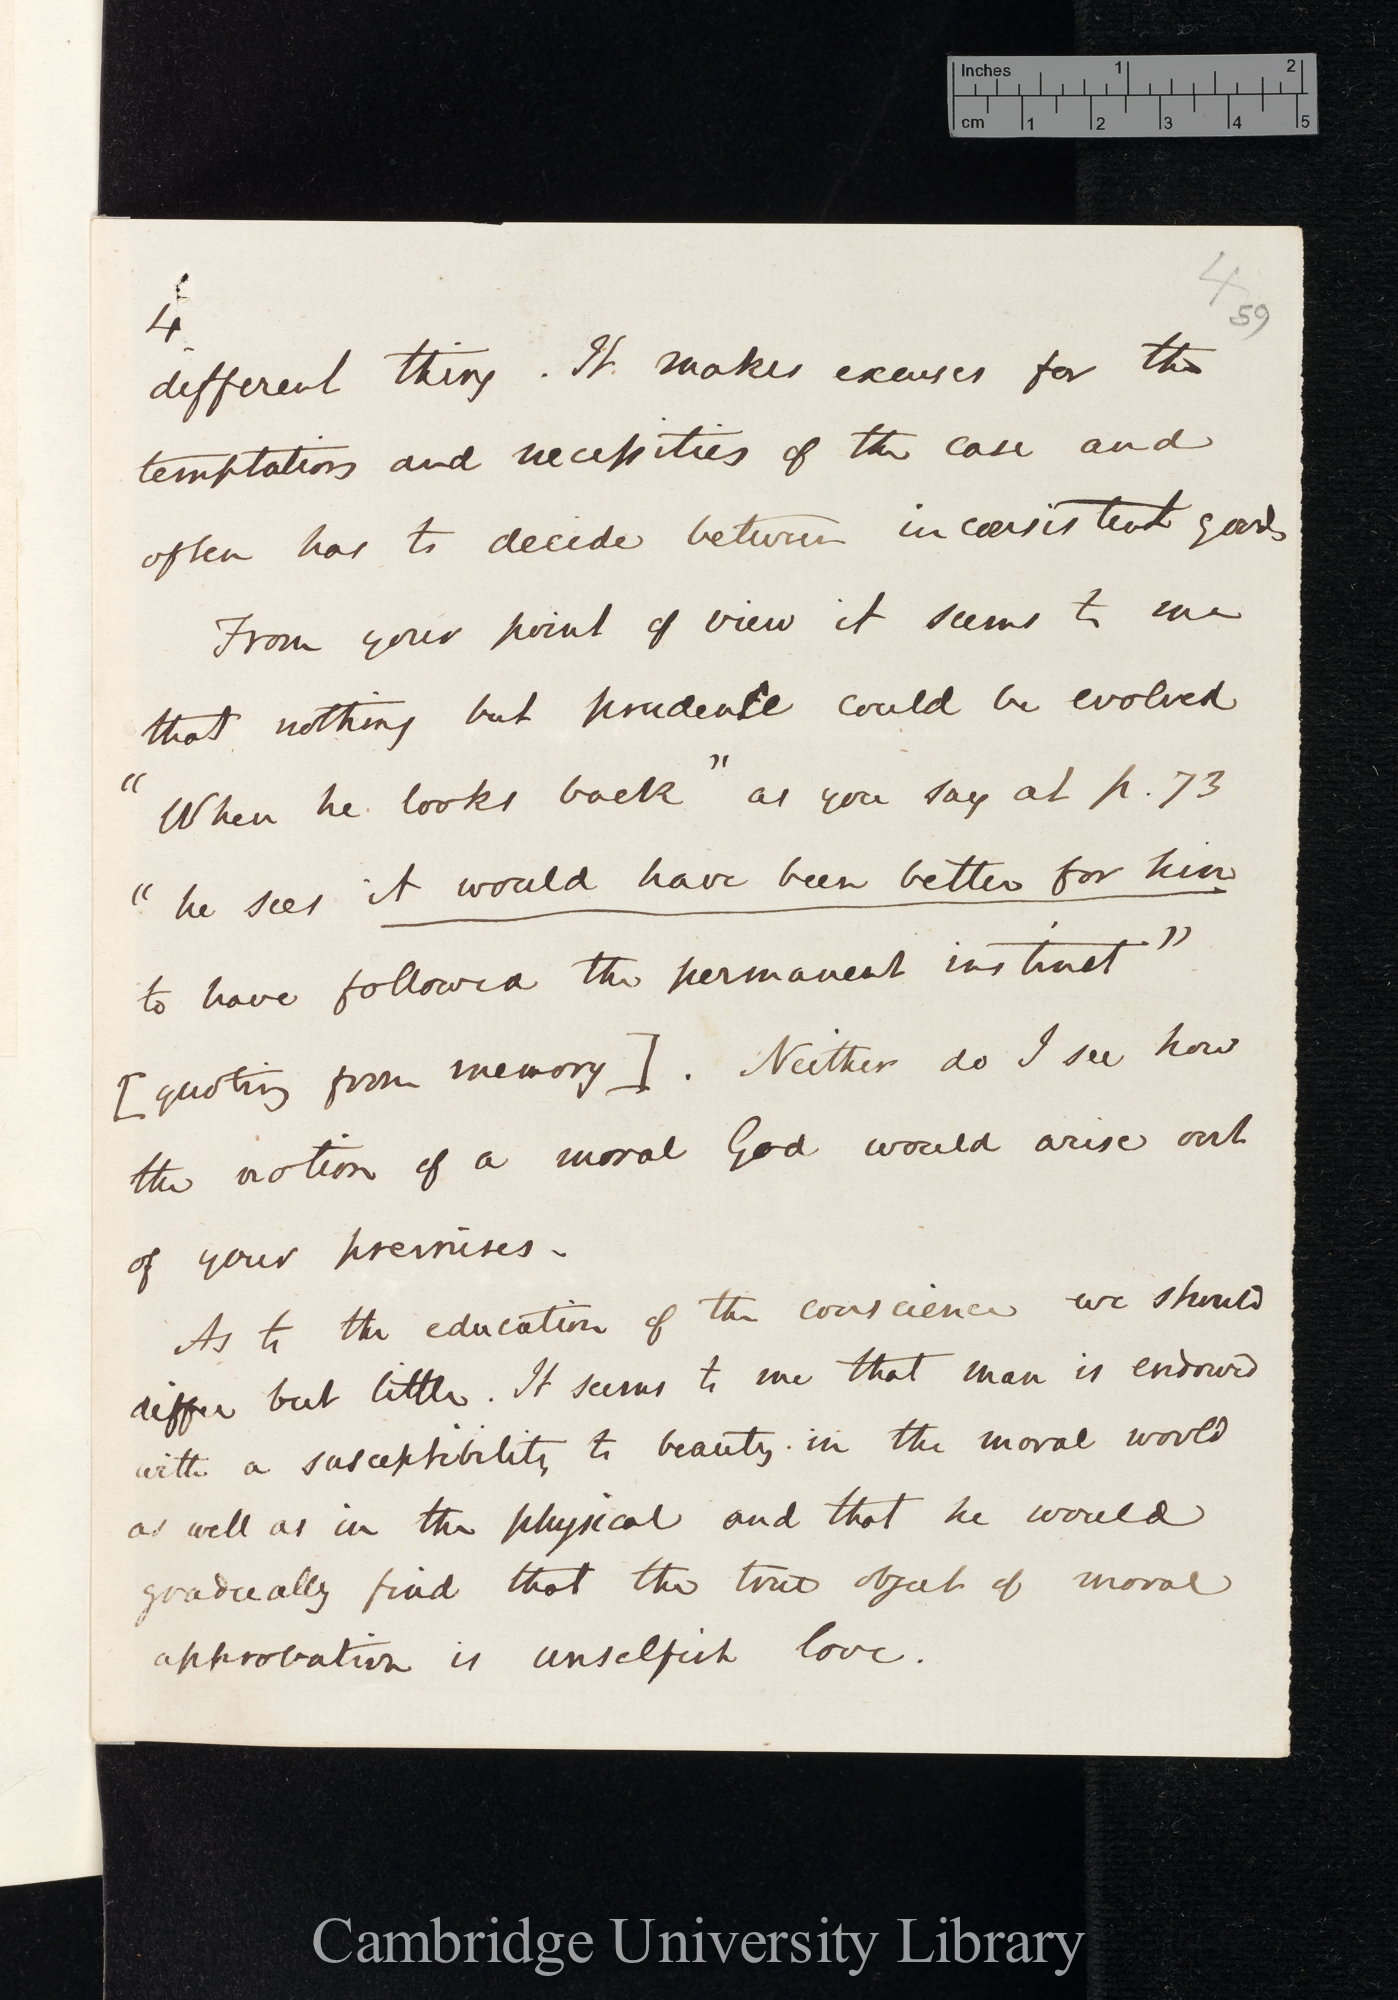 Inches 1 2
cm 1 2 3 4 5
4
59
4
different thing. It makes excuses for the
temptations and necessities of the case and
often has to decide between inconsistent goods
From your point of view it seems to me
that nothing but prudence could be evolved
"When he looks back" as you say at p. 73
"he sees it would have been better for him
to have followed the permanent instinct"
[quoting from memory]. Neither do I see how
the notion of a moral God would arise out
of your premises.
As to the education of the conscience we should
differ but little. It seems to me that man is endowed
with a susceptibility to beauty in the moral world
as well as in the physical and that he would
gradually find that the true object of moral
approbation is unselfish love.
Cambridge University Library